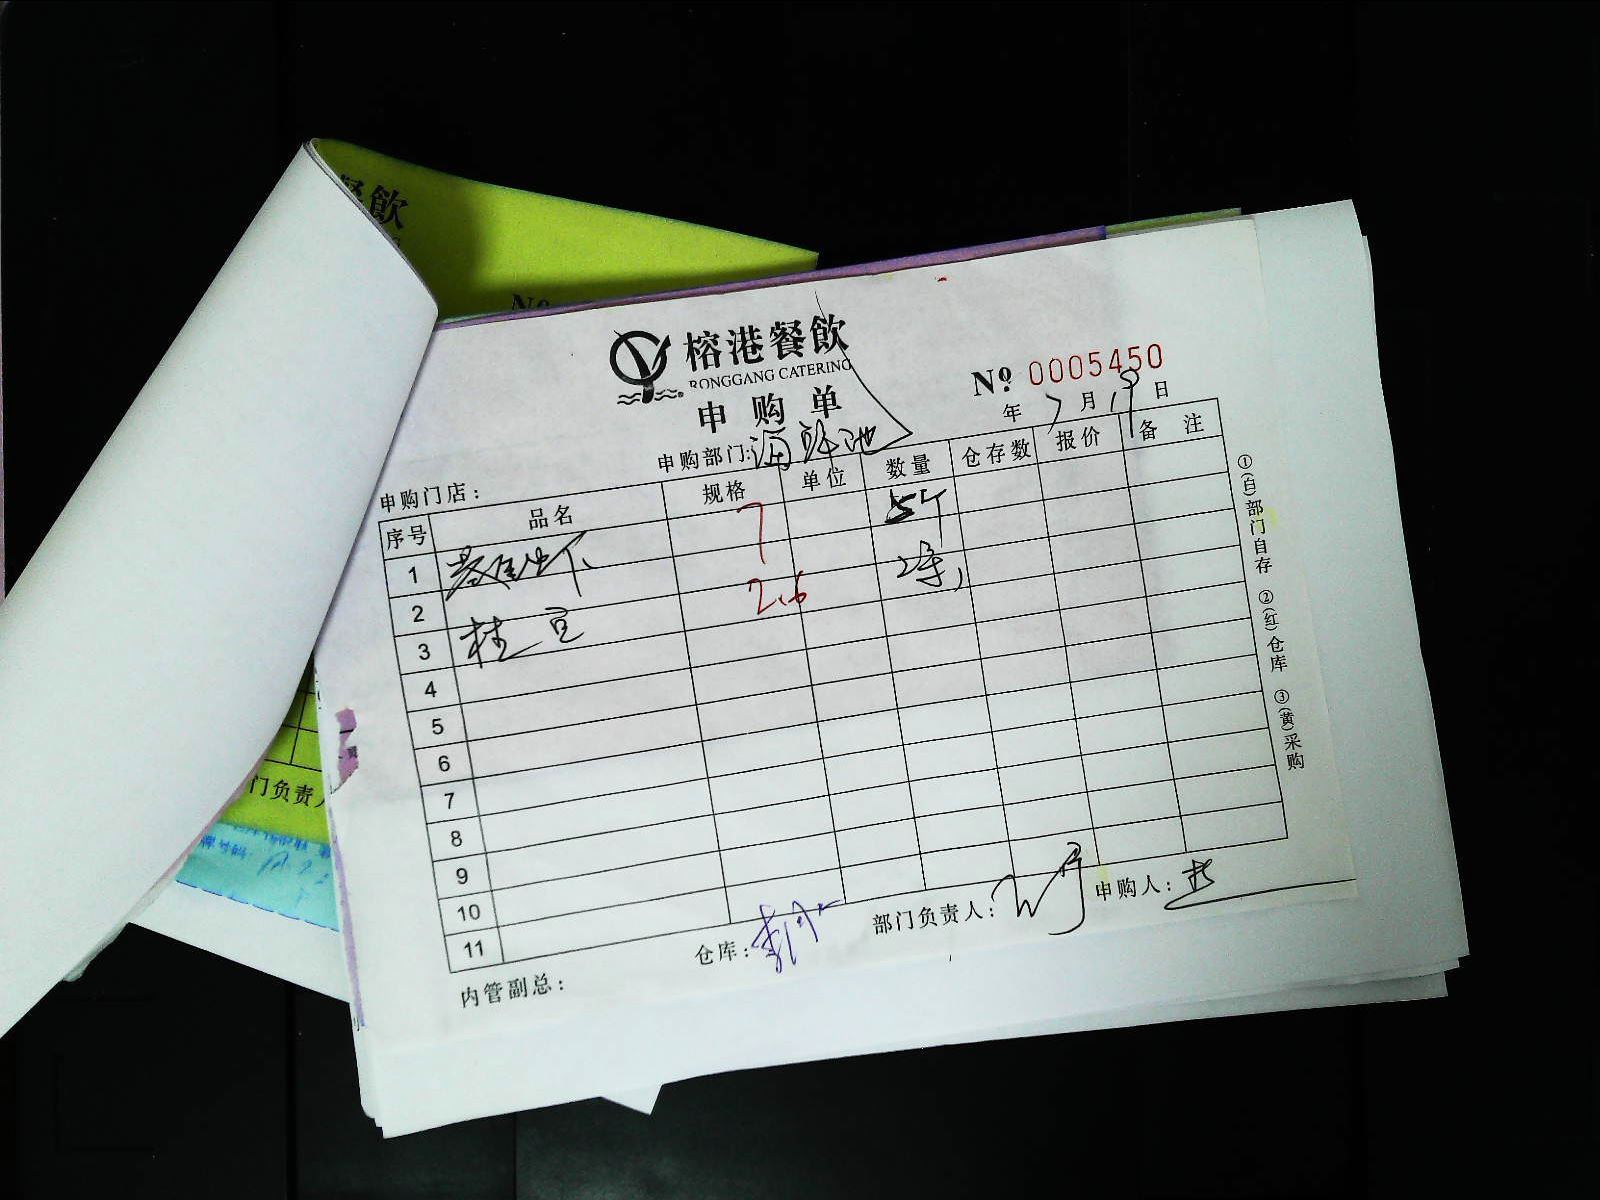 餐飲
No
榕港餐飲
RONGGANG CATERING
申购单
No. 0005450
年 7 月 19 日
申购部门: 海鲜池
申购门店:
序号 品名 规格 单位 数量 仓存数 报价 备注
1 7 5个
2
3 2.6
4
5
6
7
8
9
10
11
①(白)部门自存 ②(红)仓库 ③(黄)采购
仓库: 部门负责人: 申购人:
内管副总:
门负责人